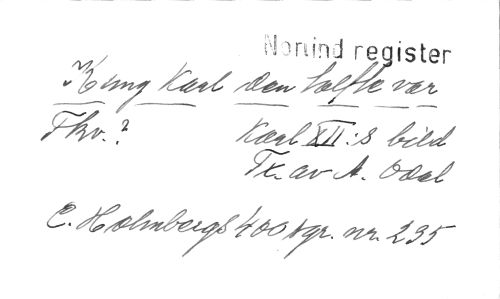 Nonind register
Kung Karl den tolfte var
Fkv.?
Karl XII:s bild
Tx. av A. Odel
C. Holmbergs 400 nr. 235